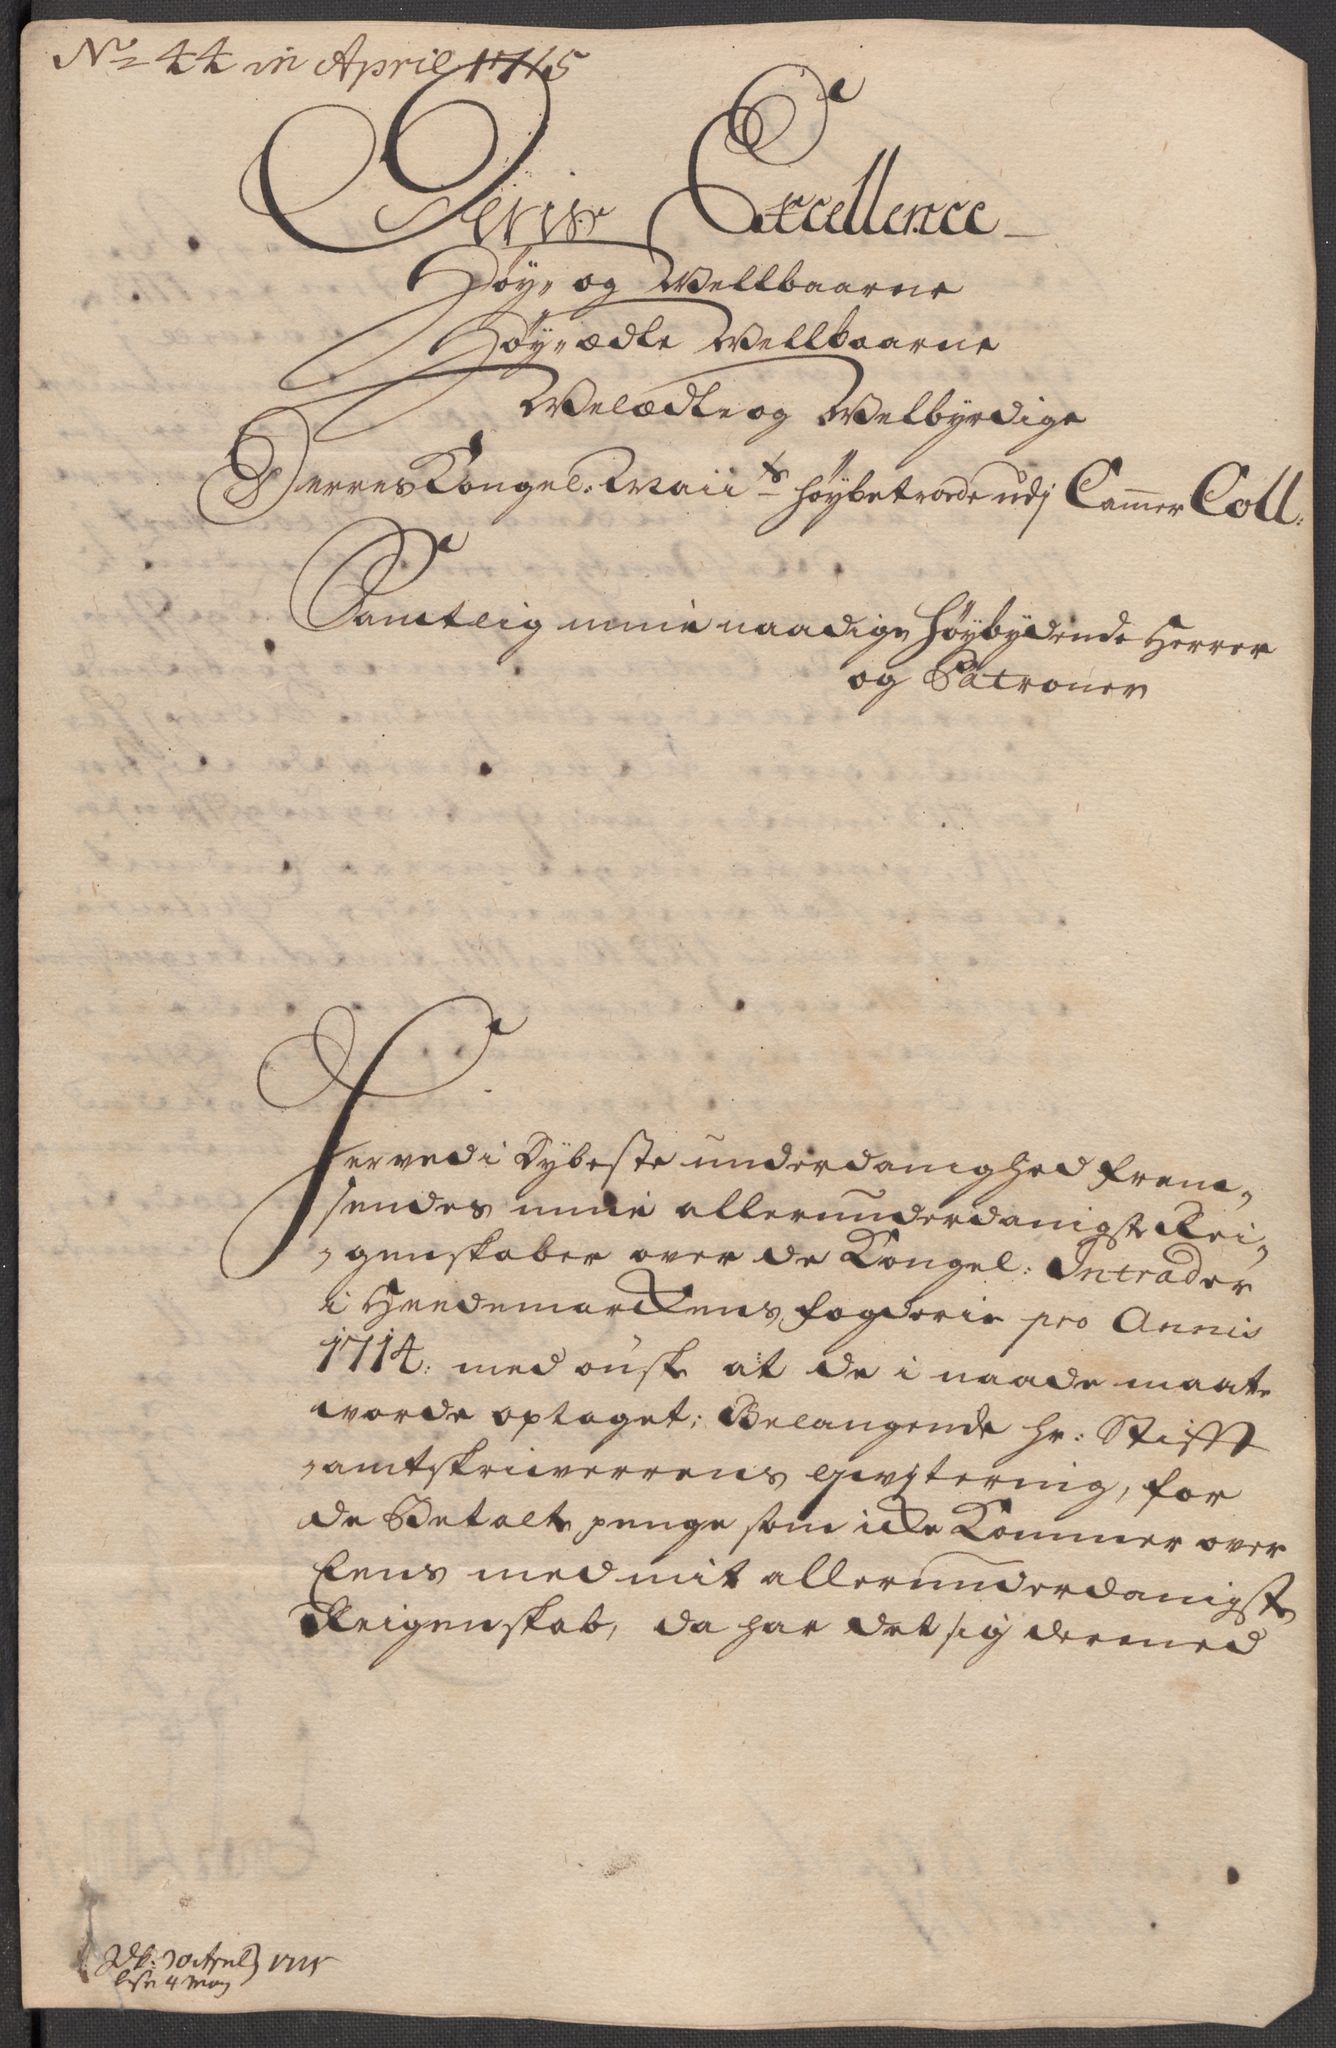 No 44 in April 1715
Deris Excellence
Høy= og Wellbaarne
Høy=ædle Wellbaarne
Welædle og Welbyrdige
Derres Kongel: Maiits høybetrode udj Cammer Coll:
Samtlig mine naadige høybydende Herrer
og Patroner
Hervedi dybeste underdanighed frem=
sendes mine allerunderdanigste Rei=
=genskaber over de Kongel: Intrader
i Heedemarckens fogderie pro Annis
1714: med ønske at de i naade maate
worde optaget; Belangende hr: Stifft
=amtskriwerrens qvitering, for
de Betalte penge som icke Kommer over
Eens med mit allerunderdanigste
Reigenskab, da har det sig dermed
30 April 1715
4 May